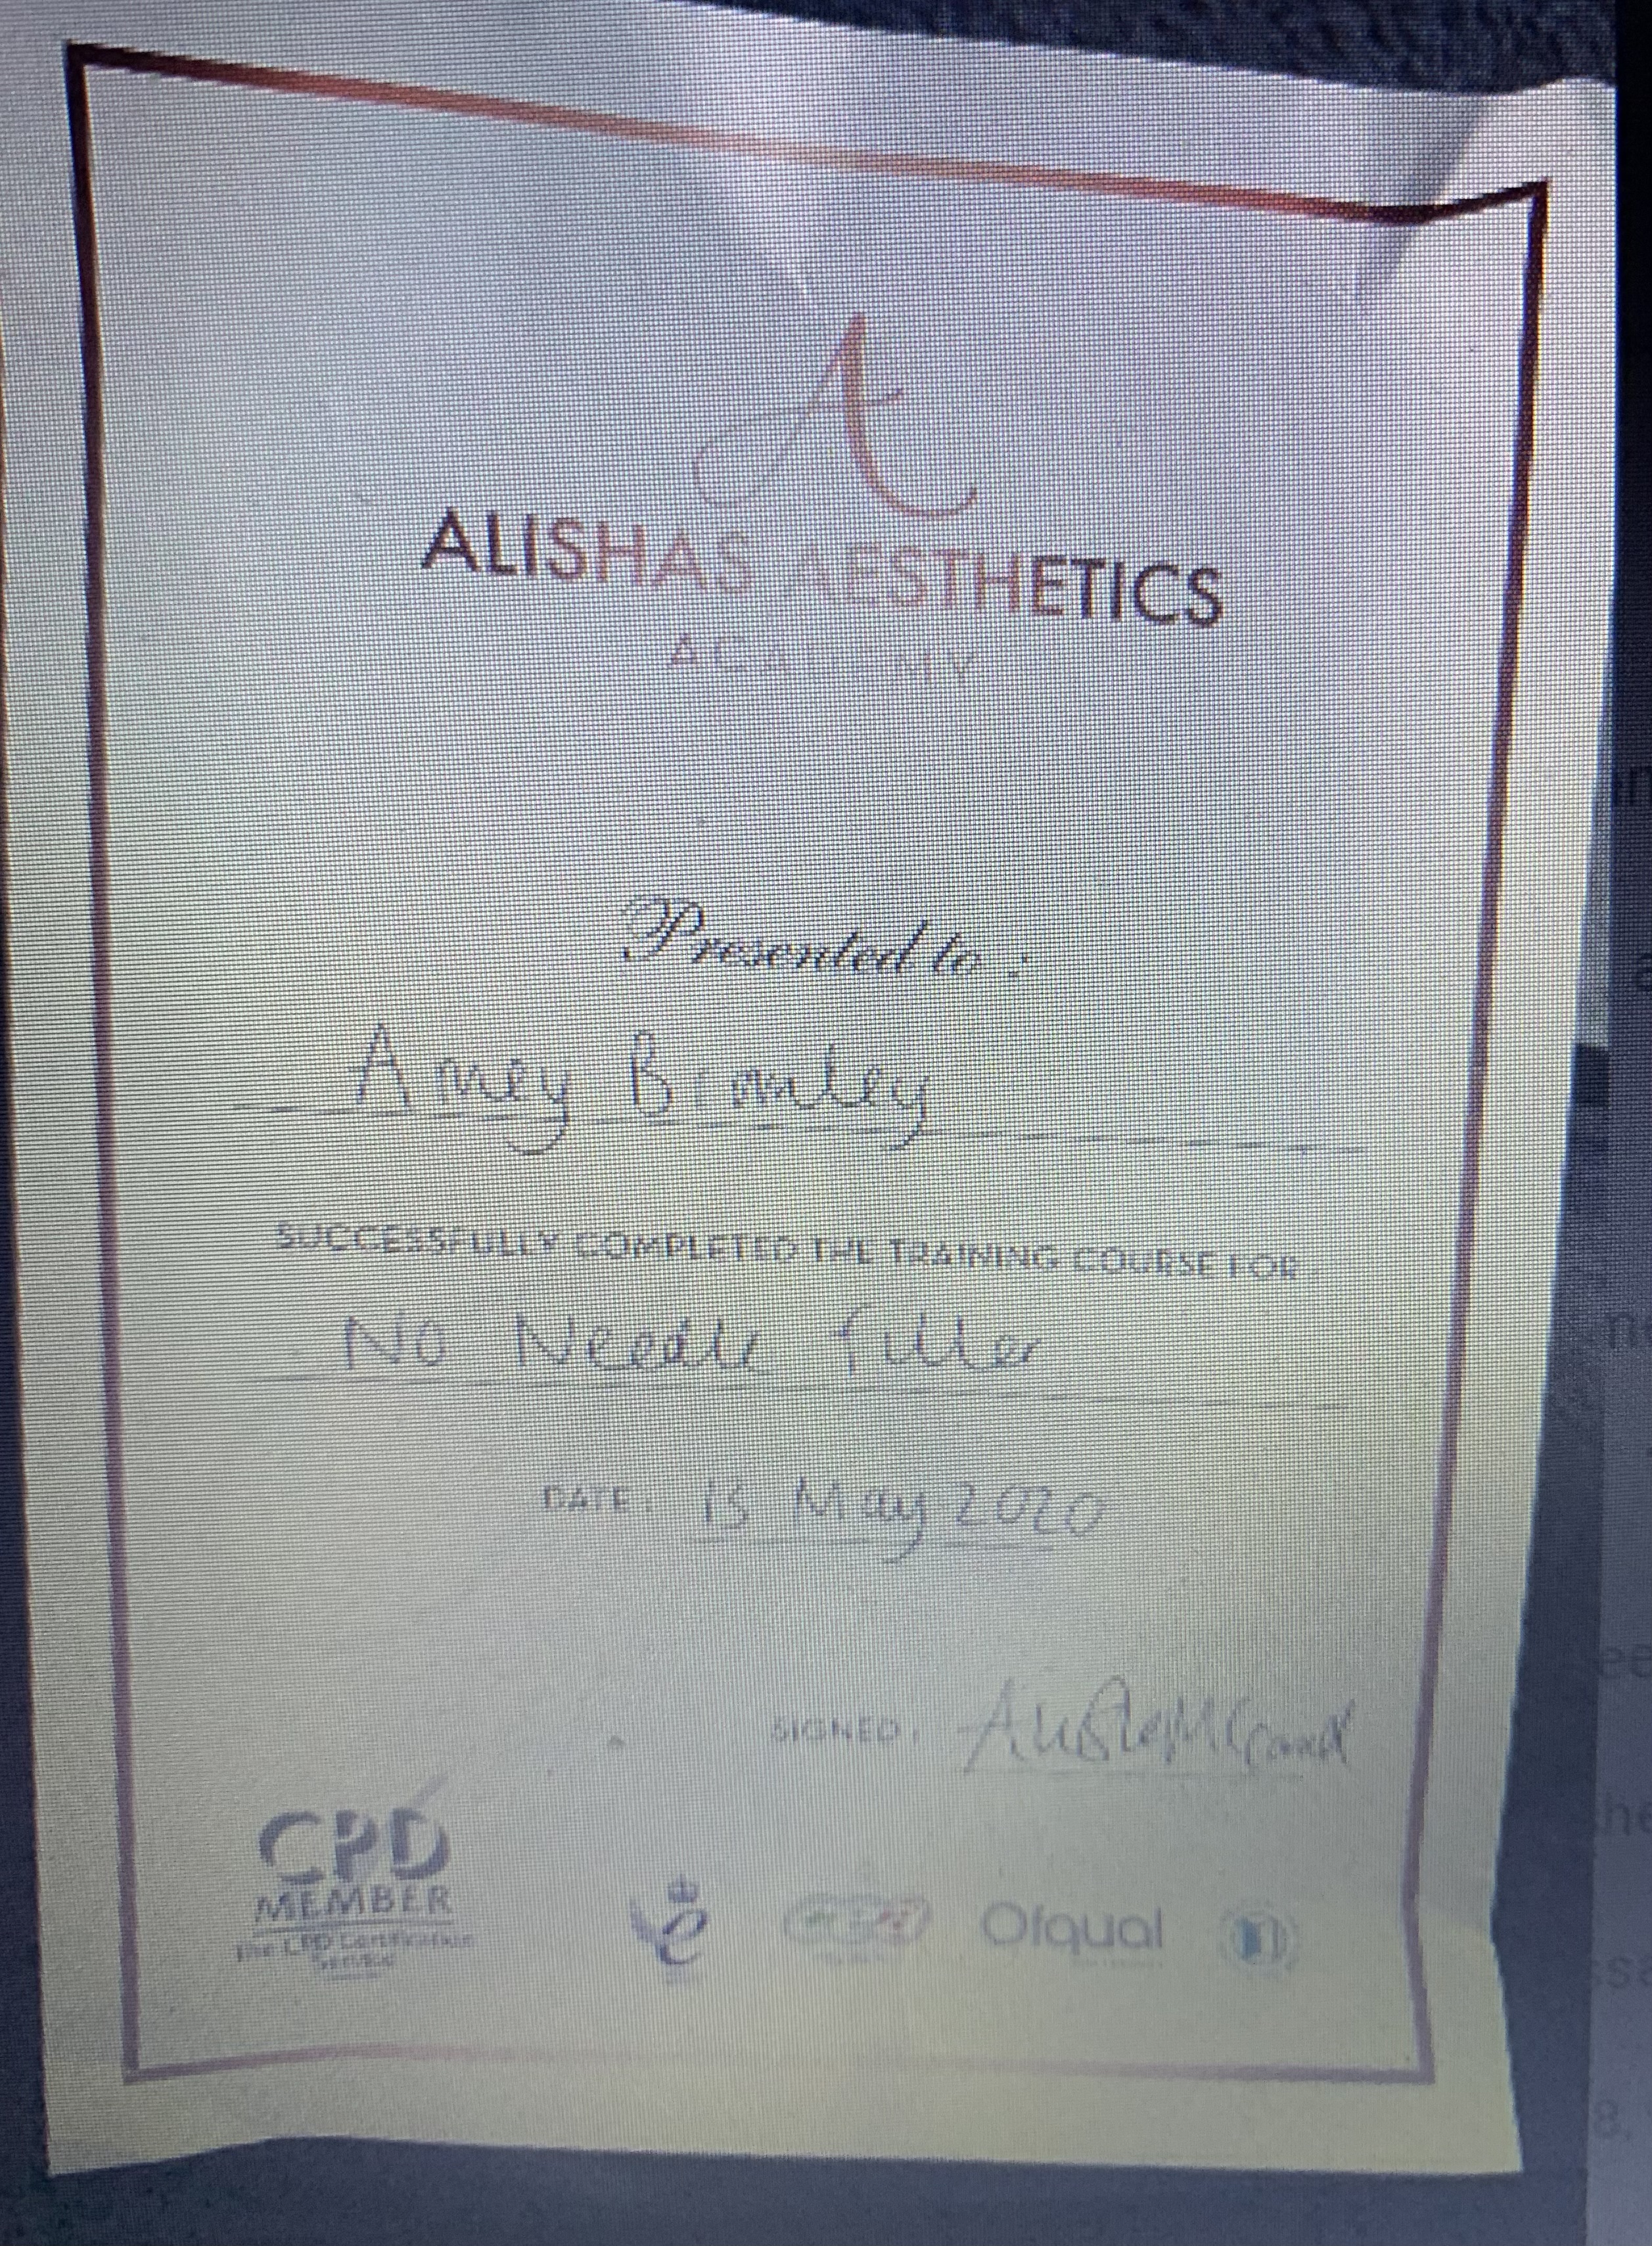 A
ALISHAS AESTHETICS
ACADEMY
Presented to :
Amey Bromley
SUCCESSFULLY COMPLETED THE TRAINING COURSE FOR
No Needle filler
DATE: 13 May 2020
SIGNED:
CPD
MEMBER
The CPD Certification
Service
e
Ofqual